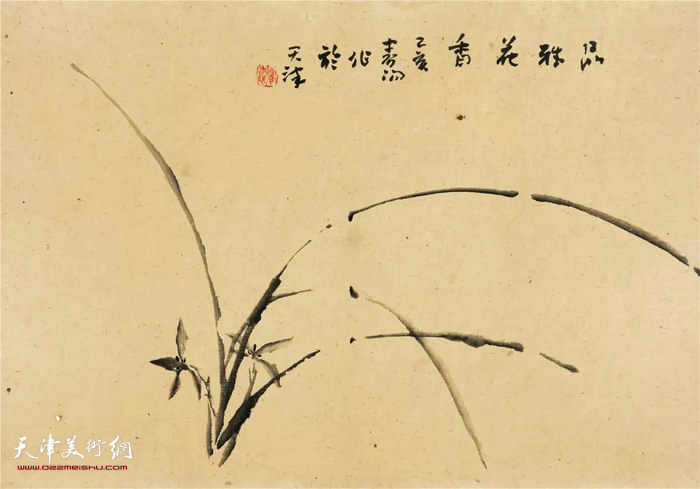 品雅花香
己亥
春润
作
於
天津
天津美術網
www.022meishu.com